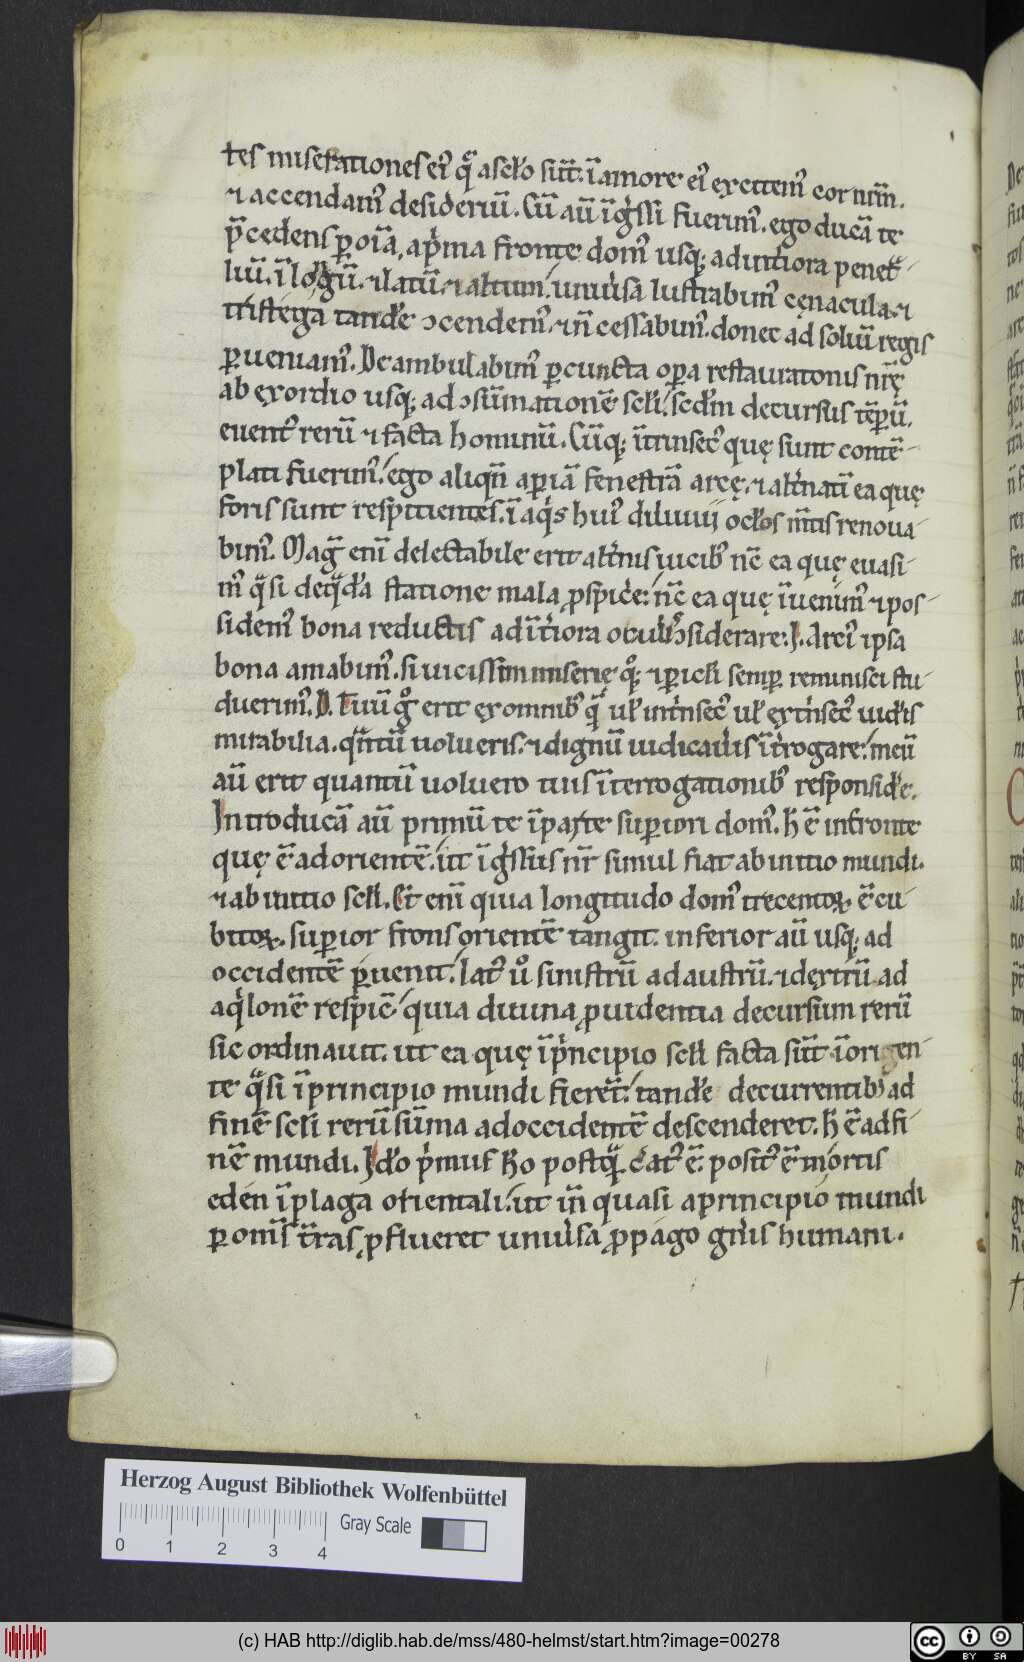 tes miserationes eiꝰ q̄ a sclo sūt. ī amore eiꝰ excitemꝰ cor nrm̄.
⁊ accendamꝰ desideriū. Cū aū īgͥssi fuerimꝰ. ego ducā te
p̄cedens ꝑ oīa, a pͥma fronte domꝰ usq; ad intͥora penet-
liū. ī logū. ⁊ latū. ⁊ altum. uniu̓sa lustrabimꝰ cęnacula. ⁊
tristega tandē ↄcendemꝰ. ⁊ n̄ cessabimꝰ. donec ad soliū regis
ꝑueniamꝰ. Deambulabimꝰ ꝑ cuncta oꝑa restauratonis nr̄ę
ab exordio usq; ad ↄsūmationē scli. scdm decursus tēpū.
euentꝰ rerū ⁊ facta hominū. Cūq; ītrinsecꝰ quę sunt contē-
plati fuerimꝰ. ego aliqn̄ apiā fenestrā arcę. ⁊ altͥnatī ea quę
foris sunt respicientes. ī aqͥs huiꝰ diluuij oclos m̄tis renoua-
bimꝰ. Magͣ eni delectabile erit altͥnis uicibꝰ nc̄ ea quę euasi-
mꝰ qͣsi de qͣda statione mala ꝓspicͤe: nc̄ ea quę īuenimꝰ ⁊ pos-
sidemꝰ bona reductis ad ītͥora oculis ↄsiderare: I. Arcꝰ ipsa
bona amabimꝰ. si uicissim miserię qͦ; ⁊ ꝑicli semꝑ reminisci stu-
duerimꝰ. D. Tuū gͦ erit ex omnibꝰ qͣ ul intͥnsecꝰ ul extͥnsecꝰ uidͥis
mirabilia. qͣntū uolueris. ⁊ dignū iudicauͥis ītͤrogare: meū
aū erit quantū uoluero tuis īterrogationibꝰ respondͤe.
Introducā aū primū te ī parte suꝑiori domꝰ. h̄ ē in fronte
quę ē ad orientē. ut īgͥssus nr̄ simul fiat ab initio mundi.
⁊ ab initio scli. Et eni quia longitudo domꝰ trecentoꝝ ē cu-
bitoꝝ. suꝑior frons orientē tangit. inferior aū usq; ad
occidentē ꝑuenit. Latꝰ uͦ sinistrū ad austrū. ⁊ dextrū ad
aqͥlonē respicͭ. quia diuina ꝓuidentia decursum rerū
sic ordinauit. ut ea quę ī pͥncipio scli facta sūt ī orien-
te qͣsi ī principio mundi fierēt. tandē decurrentibꝰ ad
finē scli rerū sūma ad occidentē descenderet. h̄ ē ad fi-
nē mundi. Ido pͥmus ho postqͣ cͤatꝰ ē. positꝰ ē in ortis
eden ī plaga orientali. ut īn quasi a principio mundi
ꝑ omīs tr̄as ꝓflueret uniuͥsa ꝓpago gnͥis humani.
Herzog August Bibliothek Wolfenbüttel
Gray Scale
0 1 2 3 4
(c) HAB http://diglib.hab.de/mss/480-helmst/start.htm?image=00278
cc BY SA